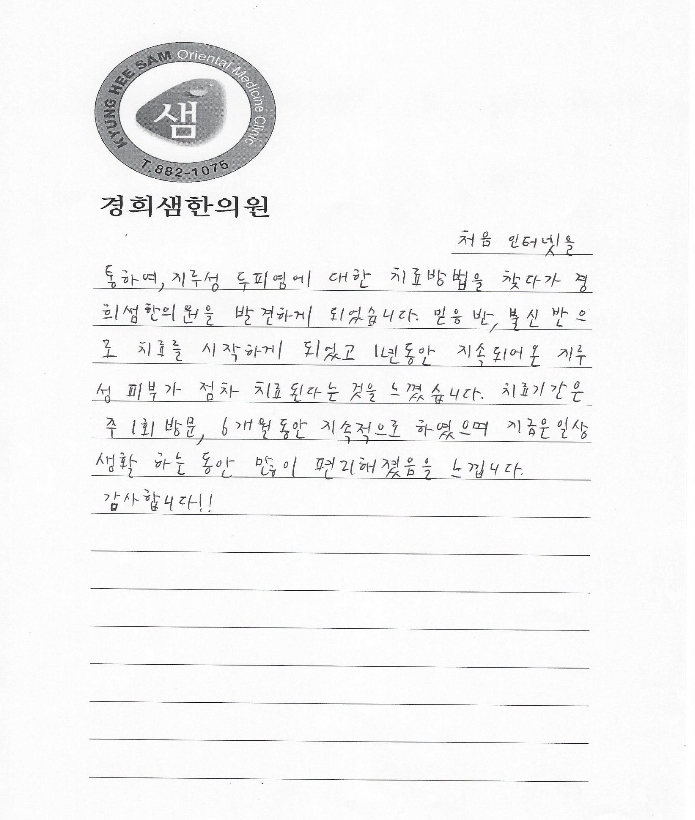 KYUNG HEE SAM Oriental Medicine Clinic
샘
T.882-1075
경희샘한의원
처음 인터넷을
통하여, 지루성 두피염에 대한 치료방법을 찾다가 경
희샘한의원을 발견하게 되었습니다. 믿음 반, 불신 반으
로 치료를 시작하게 되었고 1년동안 지속되어온 지루
성 피부가 점차 치료된다는 것을 느꼈습니다. 치료기간은
주 1회 방문, 6개월동안 지속적으로 하였으며 지금은 일상
생활 하는 동안 많이 편리해졌음을 느낍니다.
감사합니다!!